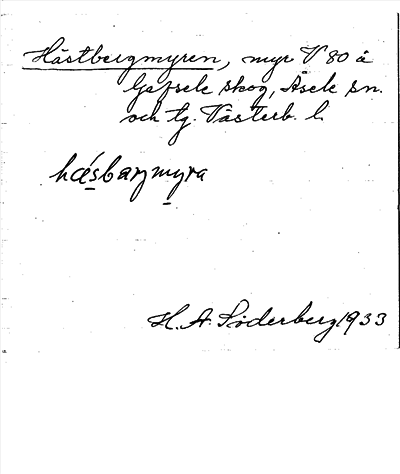 Hästbergmyren, myr V 80 å
Gafsele skog, Åsele sn.
och tg. Västerb. l.
hæ´sbarjmyra
H. A. Söderberg 1933